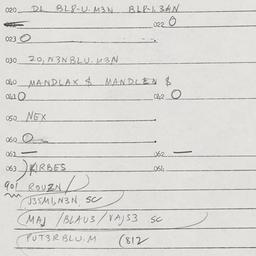 020 DL BLP-U.M3N BLP-1.3AN
022 0
023 0
030 20,N3NBLU.M3N
040 MANDLAX $ MANDLEN $
041 0 042 0
050 NEX
060 0
061 — 062 —
063 KIRBES 064
901 ROUZN /
J35M1,N3N, SC
MAJ /BLAUS/VAJS3 SC
PUT3RBLU.M (812